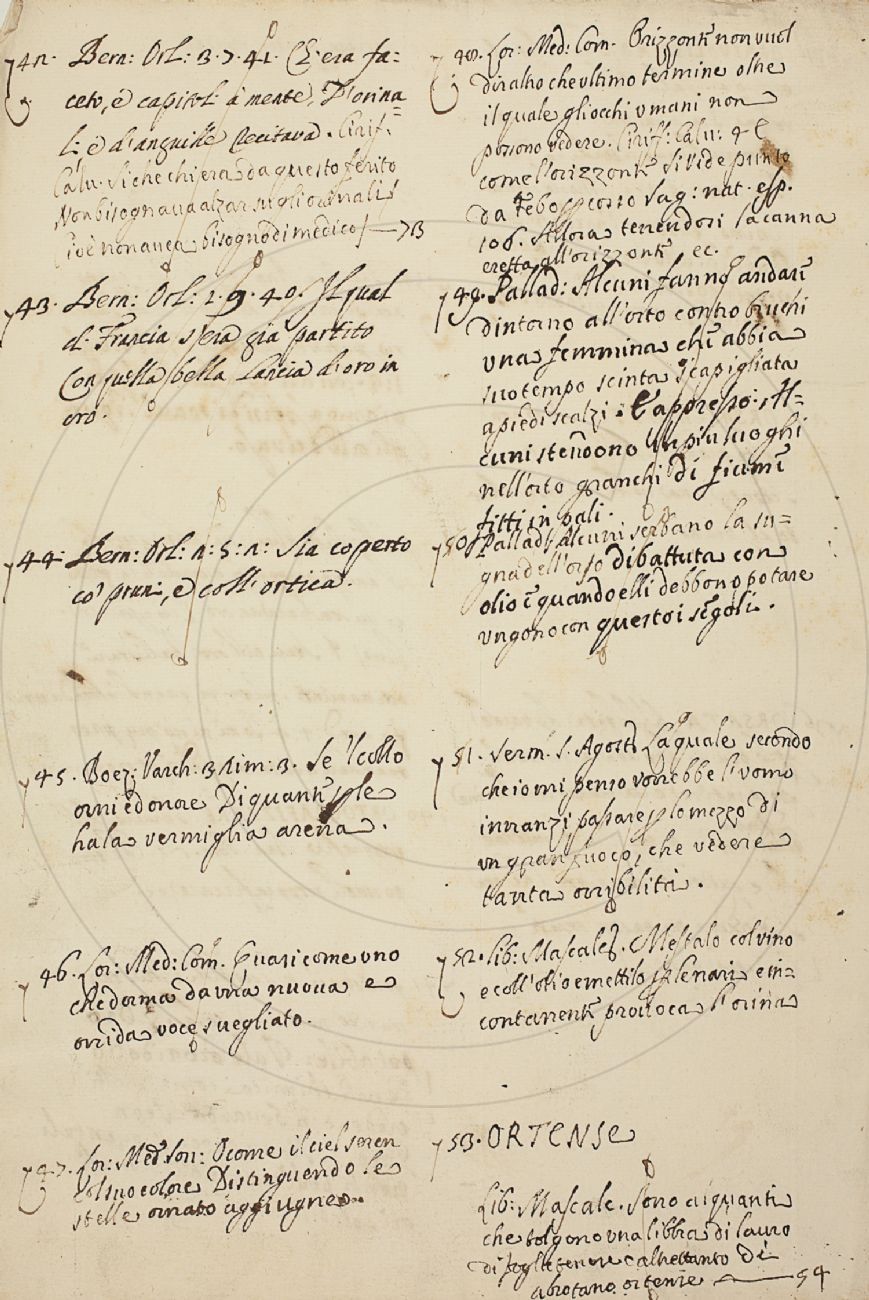 742. Bern: Orl: 3. 7. 41. Ch'era fa=
ceto, e capitoli a mente, D'orina=
li e d'anguille recitava. Ciriff:
Calu. Sì che chi era da questo ferito
Non bisognava alzar su gli orinali
Cioè non avea bisogno di medico 7B
743. Bern: Orl: 1. 9. 40. Il qual
di Francia s'era gia partito
Con quella bella Lancia d'oro in
oro.
744. Bern: Orl: 2: 5: 2: Sia coperto
co' pruni, e coll'ortica.
745. Boez: Varch: 3 rim: 3. Se 'l collo
orni ed onore Di quante perle
ha la vermiglia arena.
746. Lor: Med: Com. Quasi come uno
che dorma da una nuova e
orrida voce svegliato.
747. Lor: Med: Son: O come il ciel seren
col suo colore Distinguendo le
stelle ornato aggiugne.
748. Lor: Med: Com. Orizzonte non vuol
dir altro che ultimo termine oltre
il quale gli occhi umani non
possono vedere. Ciriff: Calu: 4 E
come l'orizzonte si vide punto
Da Febo scorso Sag: nat. esp.
106. Allora tenendosi la canna
eretta all'orizzonte ec.
749. Pallad: Alcuni fanno andare
dintorno all'orto contro bruchi
una femmina che abbia
suo tempo scinta scapigliata
a piedi scalzi. E appresso: Al=
cuni stendono in piu luoghi
nell'orto granchi di fiume
fitti in pali.
750. Pallad: Alcuni serbano la su=
gna dell'orso dibattuta con
olio e quando elli debbono potare
ungono con questo i segoli.
751. Serm. S. Agost: La quale secondo
che io mi penso vorrebbe l'uomo
innanzi passare per lo mezzo di
un gran fuoco, che vedere
tanta orribilità.
752. Lib: Mascalc. Mestalo col vino
e coll'olio e mettilo per le nari e in=
contanente provoca l'orina
753. ORTENSE
Lib: Mascalc. Sono alquanti
che tolgono una libbra di lauro
di foglie tenere e altrettanto di
abrotano ortense 54